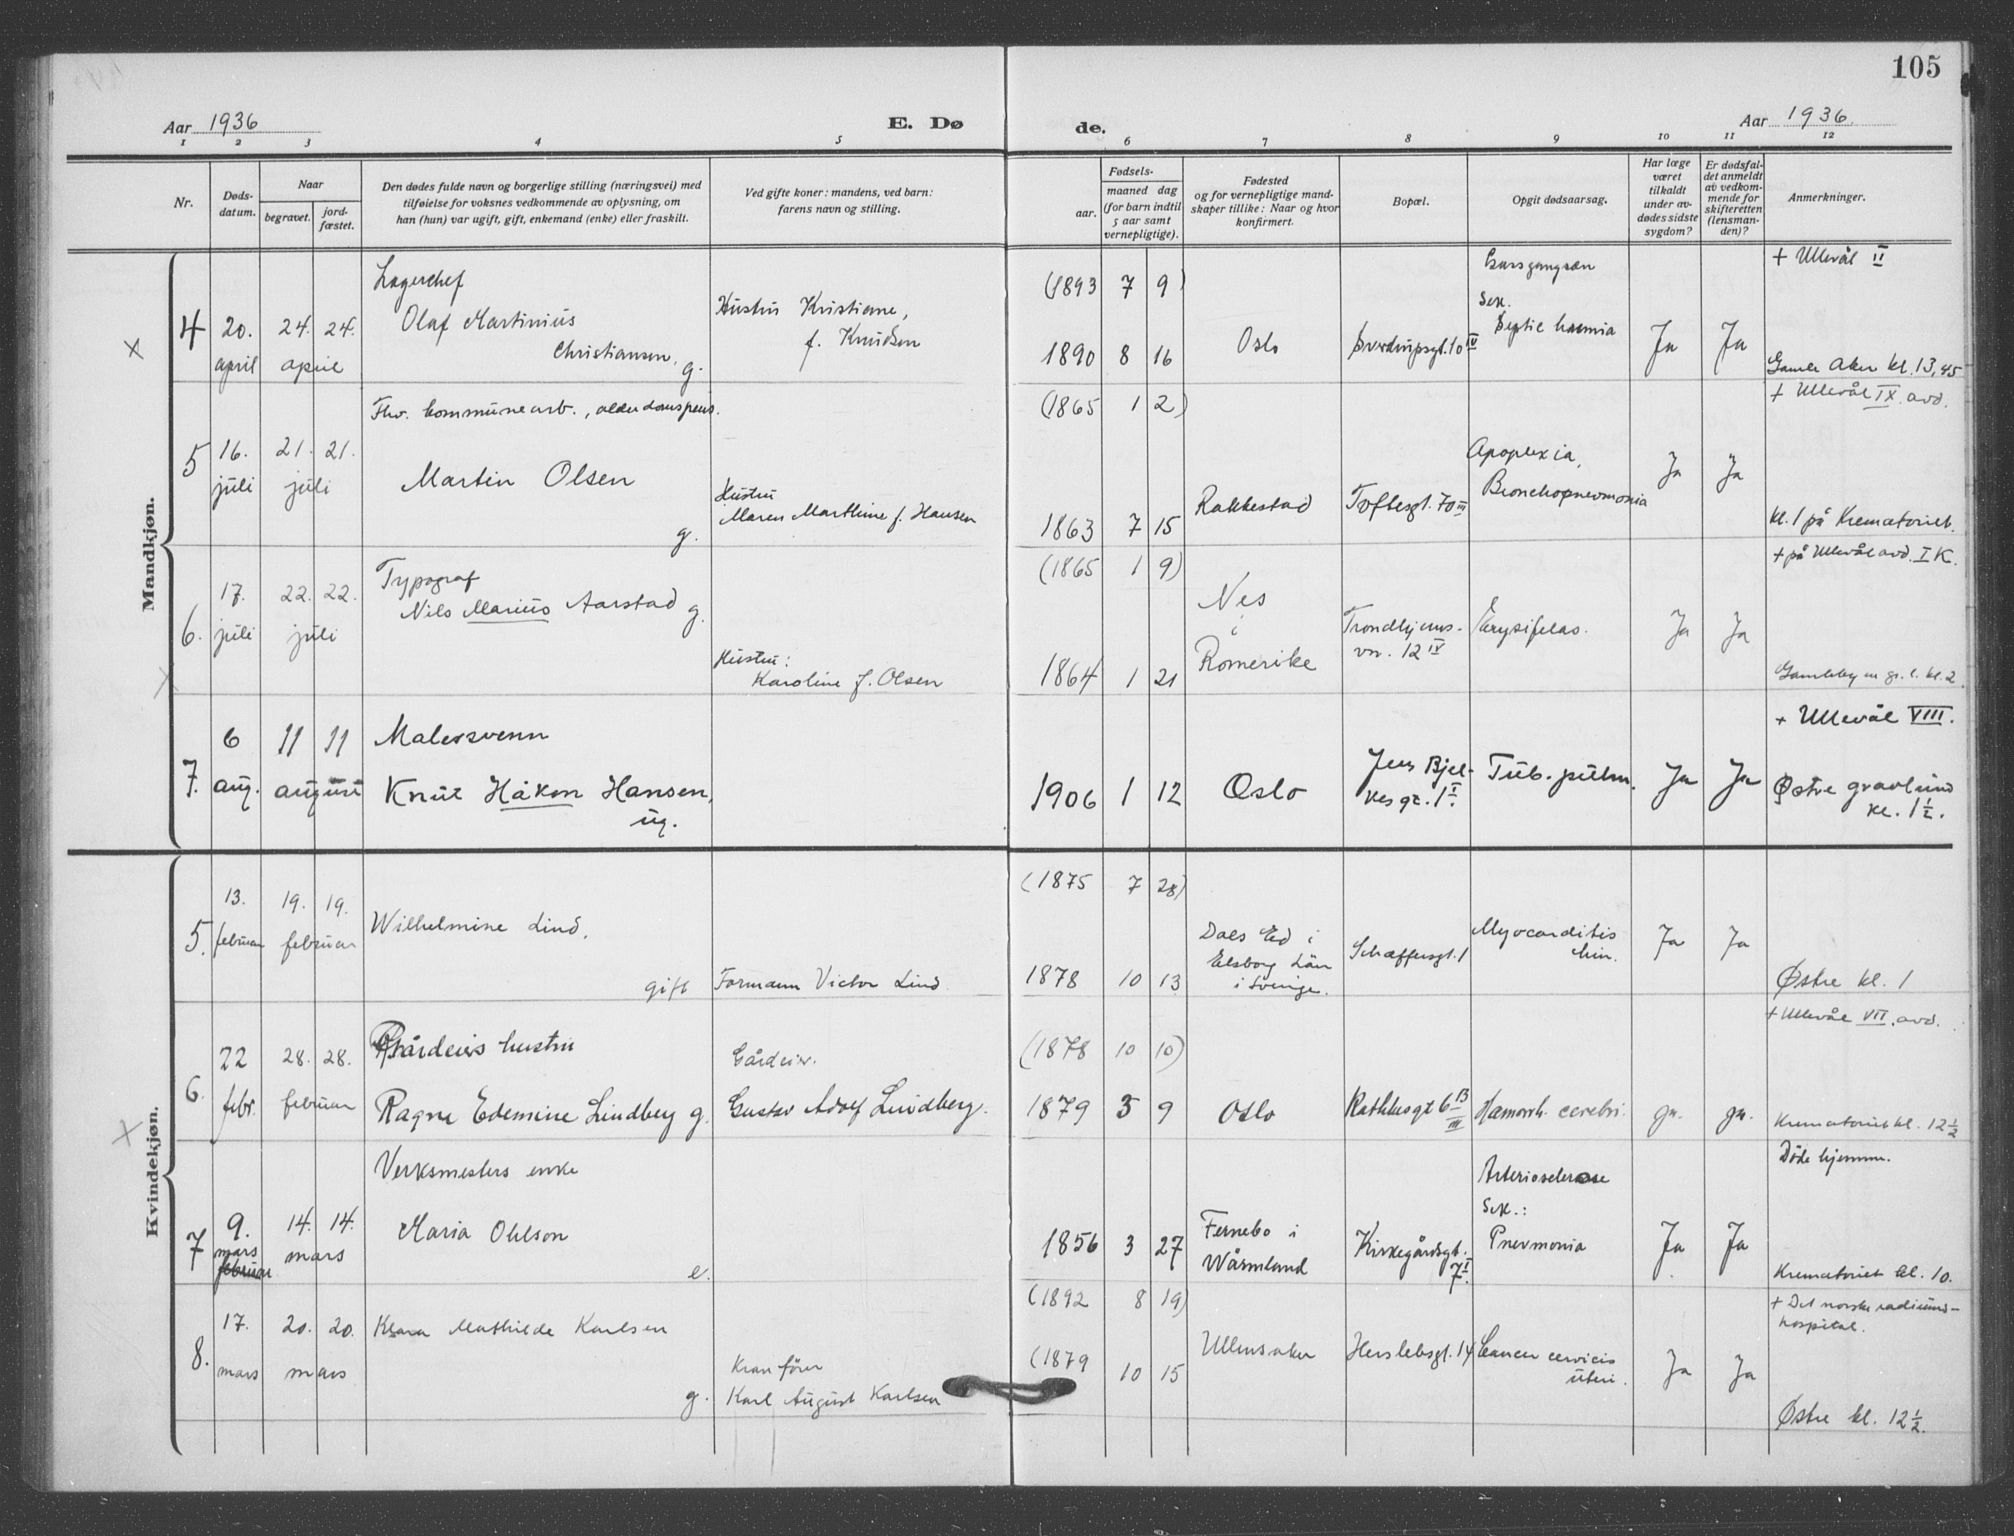 105
Aar 1936
E. Dø
de.
Aar 1936
1 2 3 4 5 6 7 8 9 10 11 12
Nr.
Døds-
datum.
Naar
begravet.
jord-
fæstet.
Den dødes fulde navn og borgerlige stilling (næringsvei) med
tilføielse for voksnes vedkommende av oplysning, om
han (hun) var ugift, gift, enkemand (enke) eller fraskilt.
Ved gifte koner: mandens, ved barn:
farens navn og stilling.
Fødsels-
aar.
maaned dag
(for barn indtil
5 aar samt
vernepligtige).
Fødested
og for vernepligtige mand-
skaper tillike: Naar og hvor
konfirmert.
Bopæl.
Opgit dødsaarsag.
Har læge
været
tilkaldt
under av-
dødes sidste
sygdom?
Er dødsfal-
det anmeldt
av vedkom-
mende for
skifteretten
(lensman-
den)?
Anmerkninger.
Mandkjøn.
4
20.
april
24. 24.
april
Lagerchef
Olaf Martinius
Christiansen, g.
Hustru Kristiane,
f. Knudsen
(1893 7 9)
1890 8 16
Oslo
Sverdrupsgt. 10 IV
Gassgangræn
Sek.
Septichæmia
Ja
Ja
+ Ullevål II
Gamle Aker kl. 13,45
5
16.
juli
21. 21.
juli
Fhv. kommunearb., alderdomspens.
Martin Olsen
g.
Hustru
Maren Marthine f. Hansen
(1865 1 2)
1863 7 15
Rakkestad
Toftesgt. 70 III
Apoplexia,
Bronchopneumonia
Ja
Ja
+ Ullevål IX. avd.
kl. 1 på Krematoriet.
6.
17.
juli
22. 22.
juli
Typograf
Nils Marius Aarstad g.
Hustru:
Karoline f. Olsen
(1865 1 9)
1864 1 21
Nes
i
Romerike
Trondhjems-
vn. 12 IV
Erysipelas.
Ja
Ja
+ på Ullevål avd. I K.
Gamleby n gr. l. kl. 2.
7.
6
aug.
11 11
august
Malersvenn
Knut Håkon Hansen,
ug.
1906 1 12
Oslo
Jens Bjel-
kesgt. 1 I.
Tub. pulm.
Ja
Ja
+ Ullevål VIII.
Østre gravlund
kl. 1 1/2.
Kvindekjøn.
5.
13.
februar
19. 19.
februar
Wilhelmine Lind,
gift
Formann Victor Lind
(1875 7 28)
1878 10 13
Dals Ed i
Elsborg Län
i Sverige.
Schæffersgt. 1
Myocarditis
chin.
Ja
Ja
Østre kl. 1
6.
22
febr.
28. 28.
februar
Gårdeiers hustru
Ragna Edemine Lindberg g.
Gårdeier.
Gustav Adolf Lindberg.
(1878 10 10)
1879 3 9
Oslo
Rathkesgt 6 B
III
Hæmorrh. cerebri.
ja.
ja.
+ Ullevål VII. avd.
Krematoriet kl. 12 1/2
7
9.
mars
februar
14. 14.
mars
Verksmesters enke
Maria Ohlson
e.
1856 3 27
Fernebo i
Wärmland
Kirkegårdsgt.
7 I.
Arteriosclerose
Sek.:
Pnevmonia
Ja
Ja
Døde hjemme.
Krematoriet kl. 10.
8.
17.
mars
20. 20.
mars
Klara Mathilde Karlsen
g.
Kranfører
Karl August Karlsen
(1892 8 19)
(1879 10 15
Ullensaker
Herslebsgt. 14
Cancer cervicis
uteri.
Ja
Ja
+ Det norske radiums-
hospital.
Østre kl. 12 1/2.